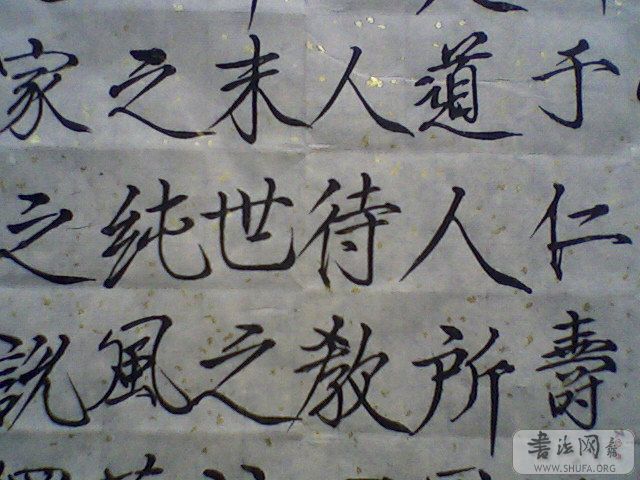 于仁壽
道人所
人待教
末世之
之純風
家之說
書法网
WWW.SHUFA.ORG